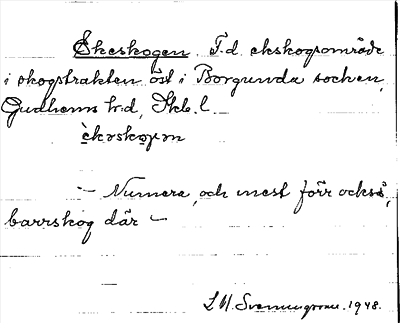 Ekeskogen. F.d. ekskogsområde
i skogstrakten öst i Borgunda socken,
Gudhems h:d, Skb. l.
ekoskoɡ̣ən
— Numera, och mest förr också,
barrskog där —
S M. Svenungsson. 1948.